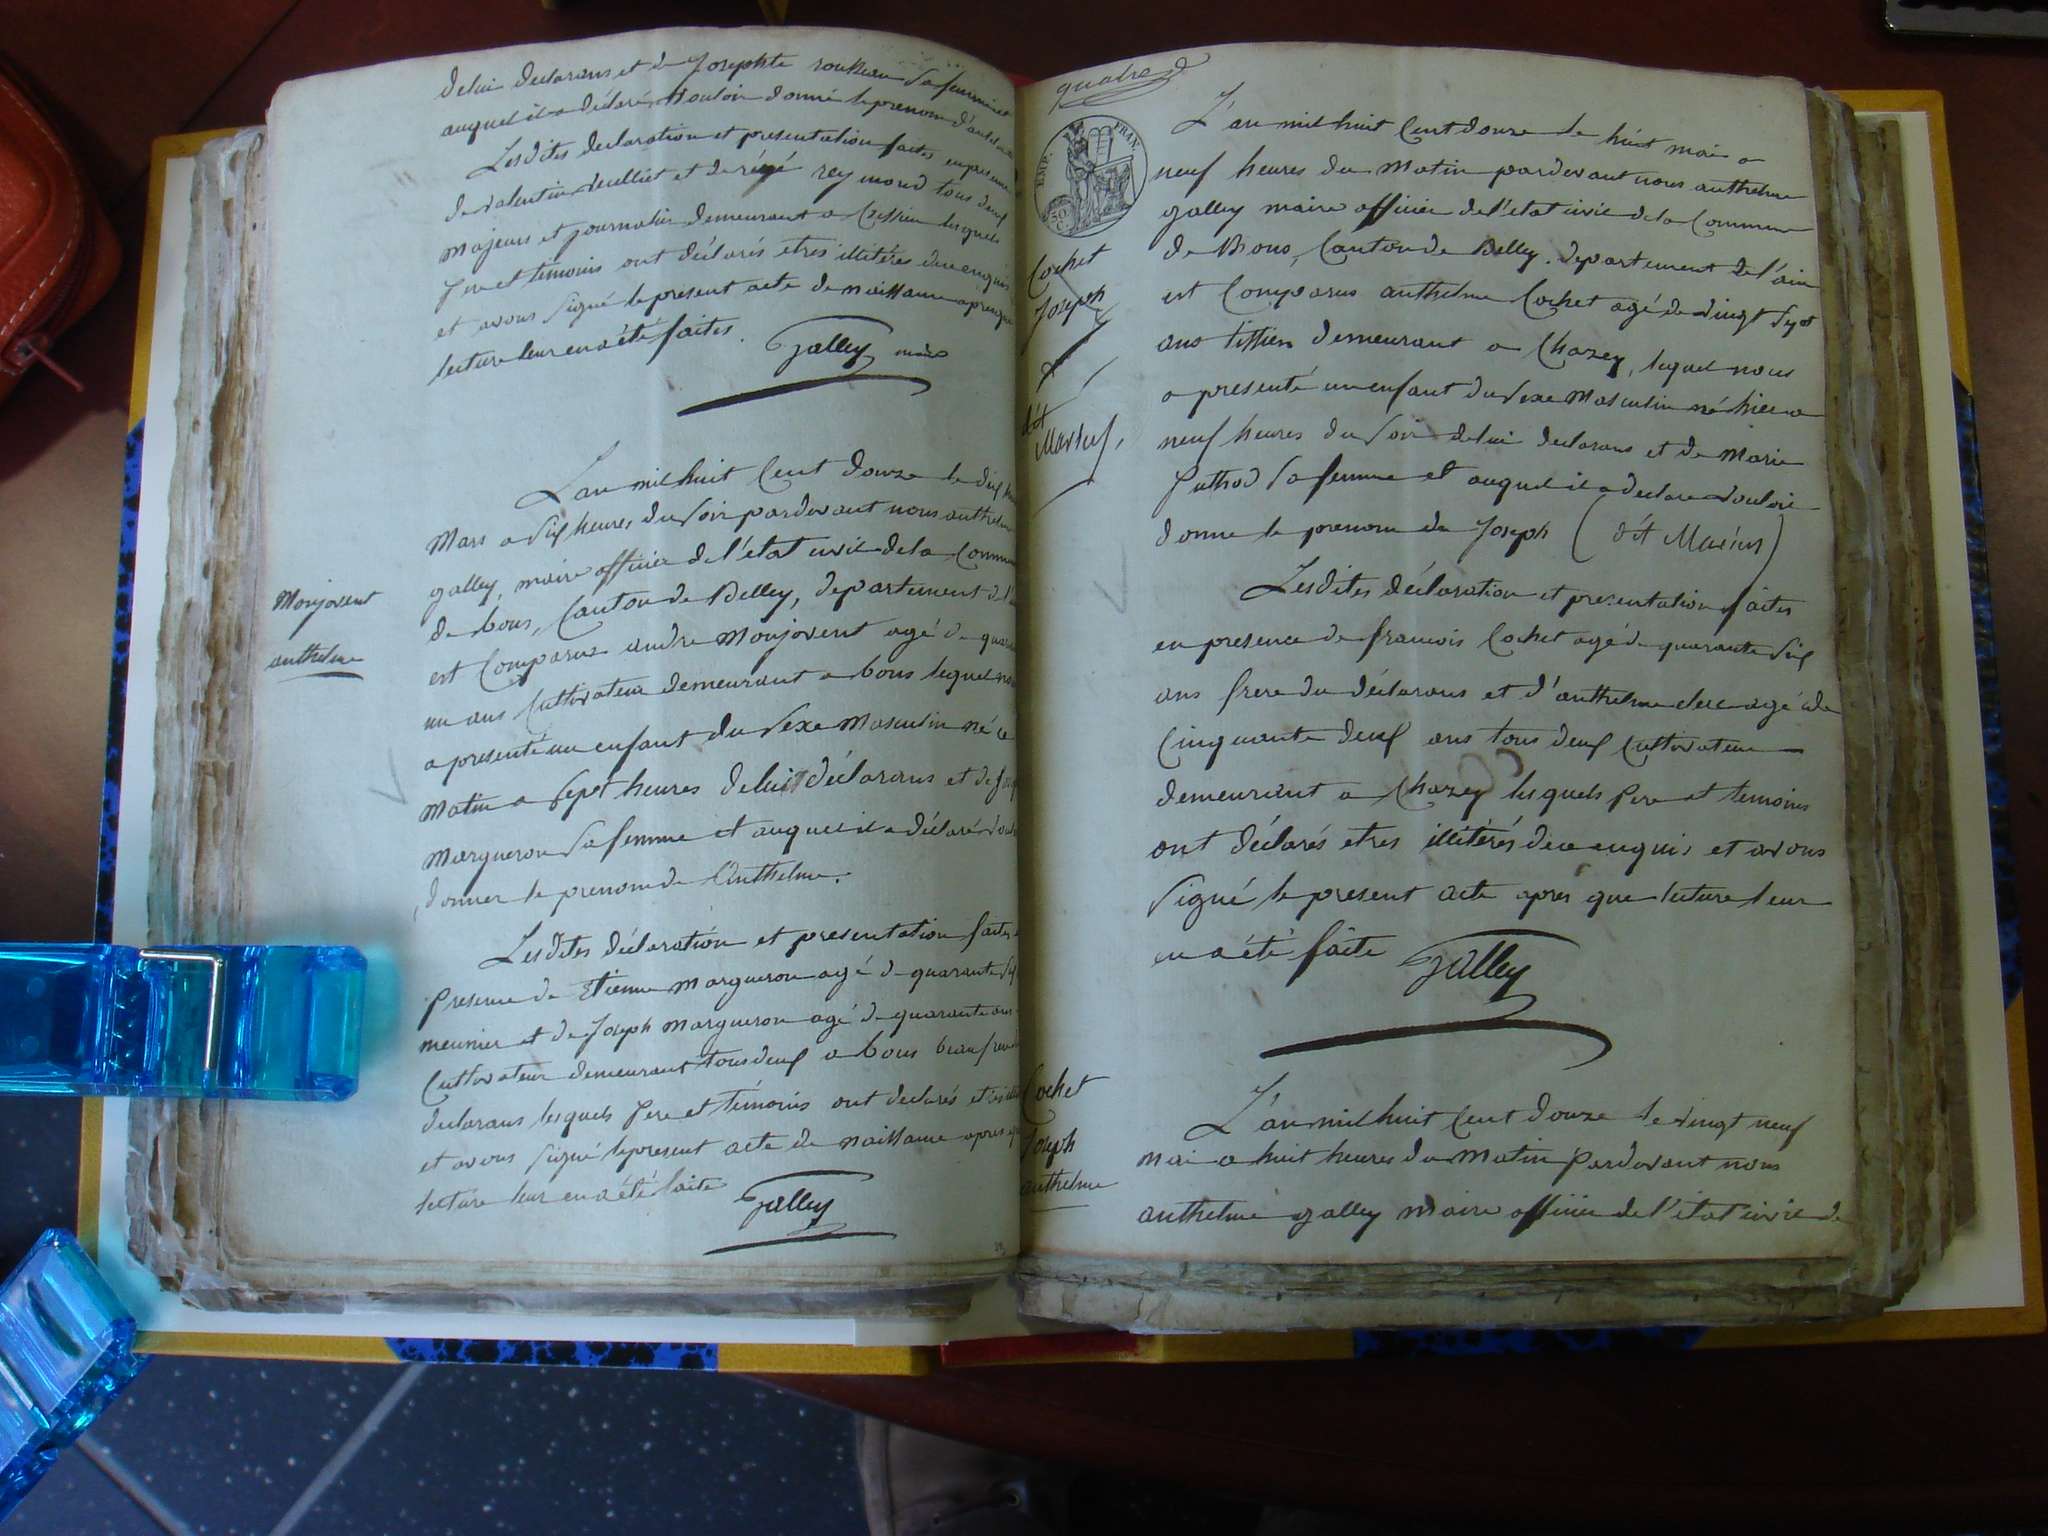 delui declarans et de Josephte rousseau sa femme et
auquel il a déclaré vouloir donné le prenom d'anthelme
Lesdites declaration et presentation faites en presence
de valentin et de réné reymond tous deux
majeurs et journalier demeurant a Cressieu lesquels
pere et temoins ont déclarés etres illitérés de ce enquis
et avons signé le present acte de naissance apres que
lecture leur en a été faites. Galley maire
L'an mil huit Cent douze le dix huit
Mars a six heures du soir pardevant nous anthelme
galley, maire officier de l'état civil de la Commune
de bons, Canton de Belley, departement de l'
est Comparus andre Monjovent agé de quarante
un ans Cultivateur demeurant a bons lequel nous
a presenté un enfant du sexe Masculin né ce
Matin a sept heures delui déclarans et de
Margueron sa femme et auquel il a déclaré vouloir
donner le prenom de Anthelme.
Monjovent
anthelme
Lesdites déclaration et presentation faites en
presence de Etienne Margueron agé de quarante six
meunier et de Joseph Margueron agé de quarante ans
Cultivateur demeurant tous deux a bons beaufrere
declarans lesquels pere et témoins ont declarés etres
et avons signé le present acte de naissance apres que
lecture leur en a été faite Galley
quatre
EMP. FRAN.
50 C.
L'an mil huit Cent douze le huit mai a
neuf heures du Matin pardevant nous anthelme
galley maire officier de l'etat civil de la Commune
de Bons, Canton de Belley. departement de l'ain
est Comparus anthelme Cochet agé de vingt sept
ans tissier demeurant a Chazey, lequel nous
a presenté un enfant du sexe Masculin né hier a
neuf heures du soir delui declarans et de Marie
Puthod sa femme et auquel il a declare vouloir
donne le prenom de Joseph (dit Marius)
Cochet
Joseph
dit
Marius,
Lesdites déclaration et presentation faites
en presence de francois Cochet agé de quarante six
ans frere du déclarans et d'anthelme clerc agé de
Cinquante deux ans tous deux Cultivateur
demeurant a Chazey lesquels pere et temoins
ont déclarés etres illitérés de ce enquis et avons
signé le present acte apres que lecture leur
en a été faite Galley
Cochet
Joseph
anthelme
L'an mil huit Cent douze le vingt neuf
mai a huit heures du Matin Pardevant nous
anthelme galley Maire officier de l'état civil de